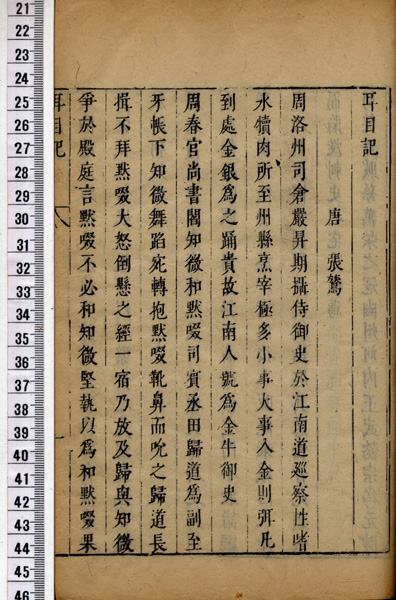 耳目記
唐 張鷟
周洛州司倉嚴昇期攝侍御史於江南道巡察性嗜
水犢肉所至州縣烹宰極多小事大事入金則弭凡
到處金銀為之踊貴故江南人號為金牛御史
周春官尚書閻知微和默啜司賓丞田歸道為副至
牙帳下知微舞蹈宛轉抱默啜靴鼻而吮之歸道長
揖不拜默啜大怒倒懸之經一宿乃放及歸與知微
爭於殿庭言默啜不必和知微堅執以為和默啜果
耳目記
一
21
22
23
24
25
26
27
28
29
30
31
32
33
34
35
36
37
38
39
40
41
42
43
44
45
46